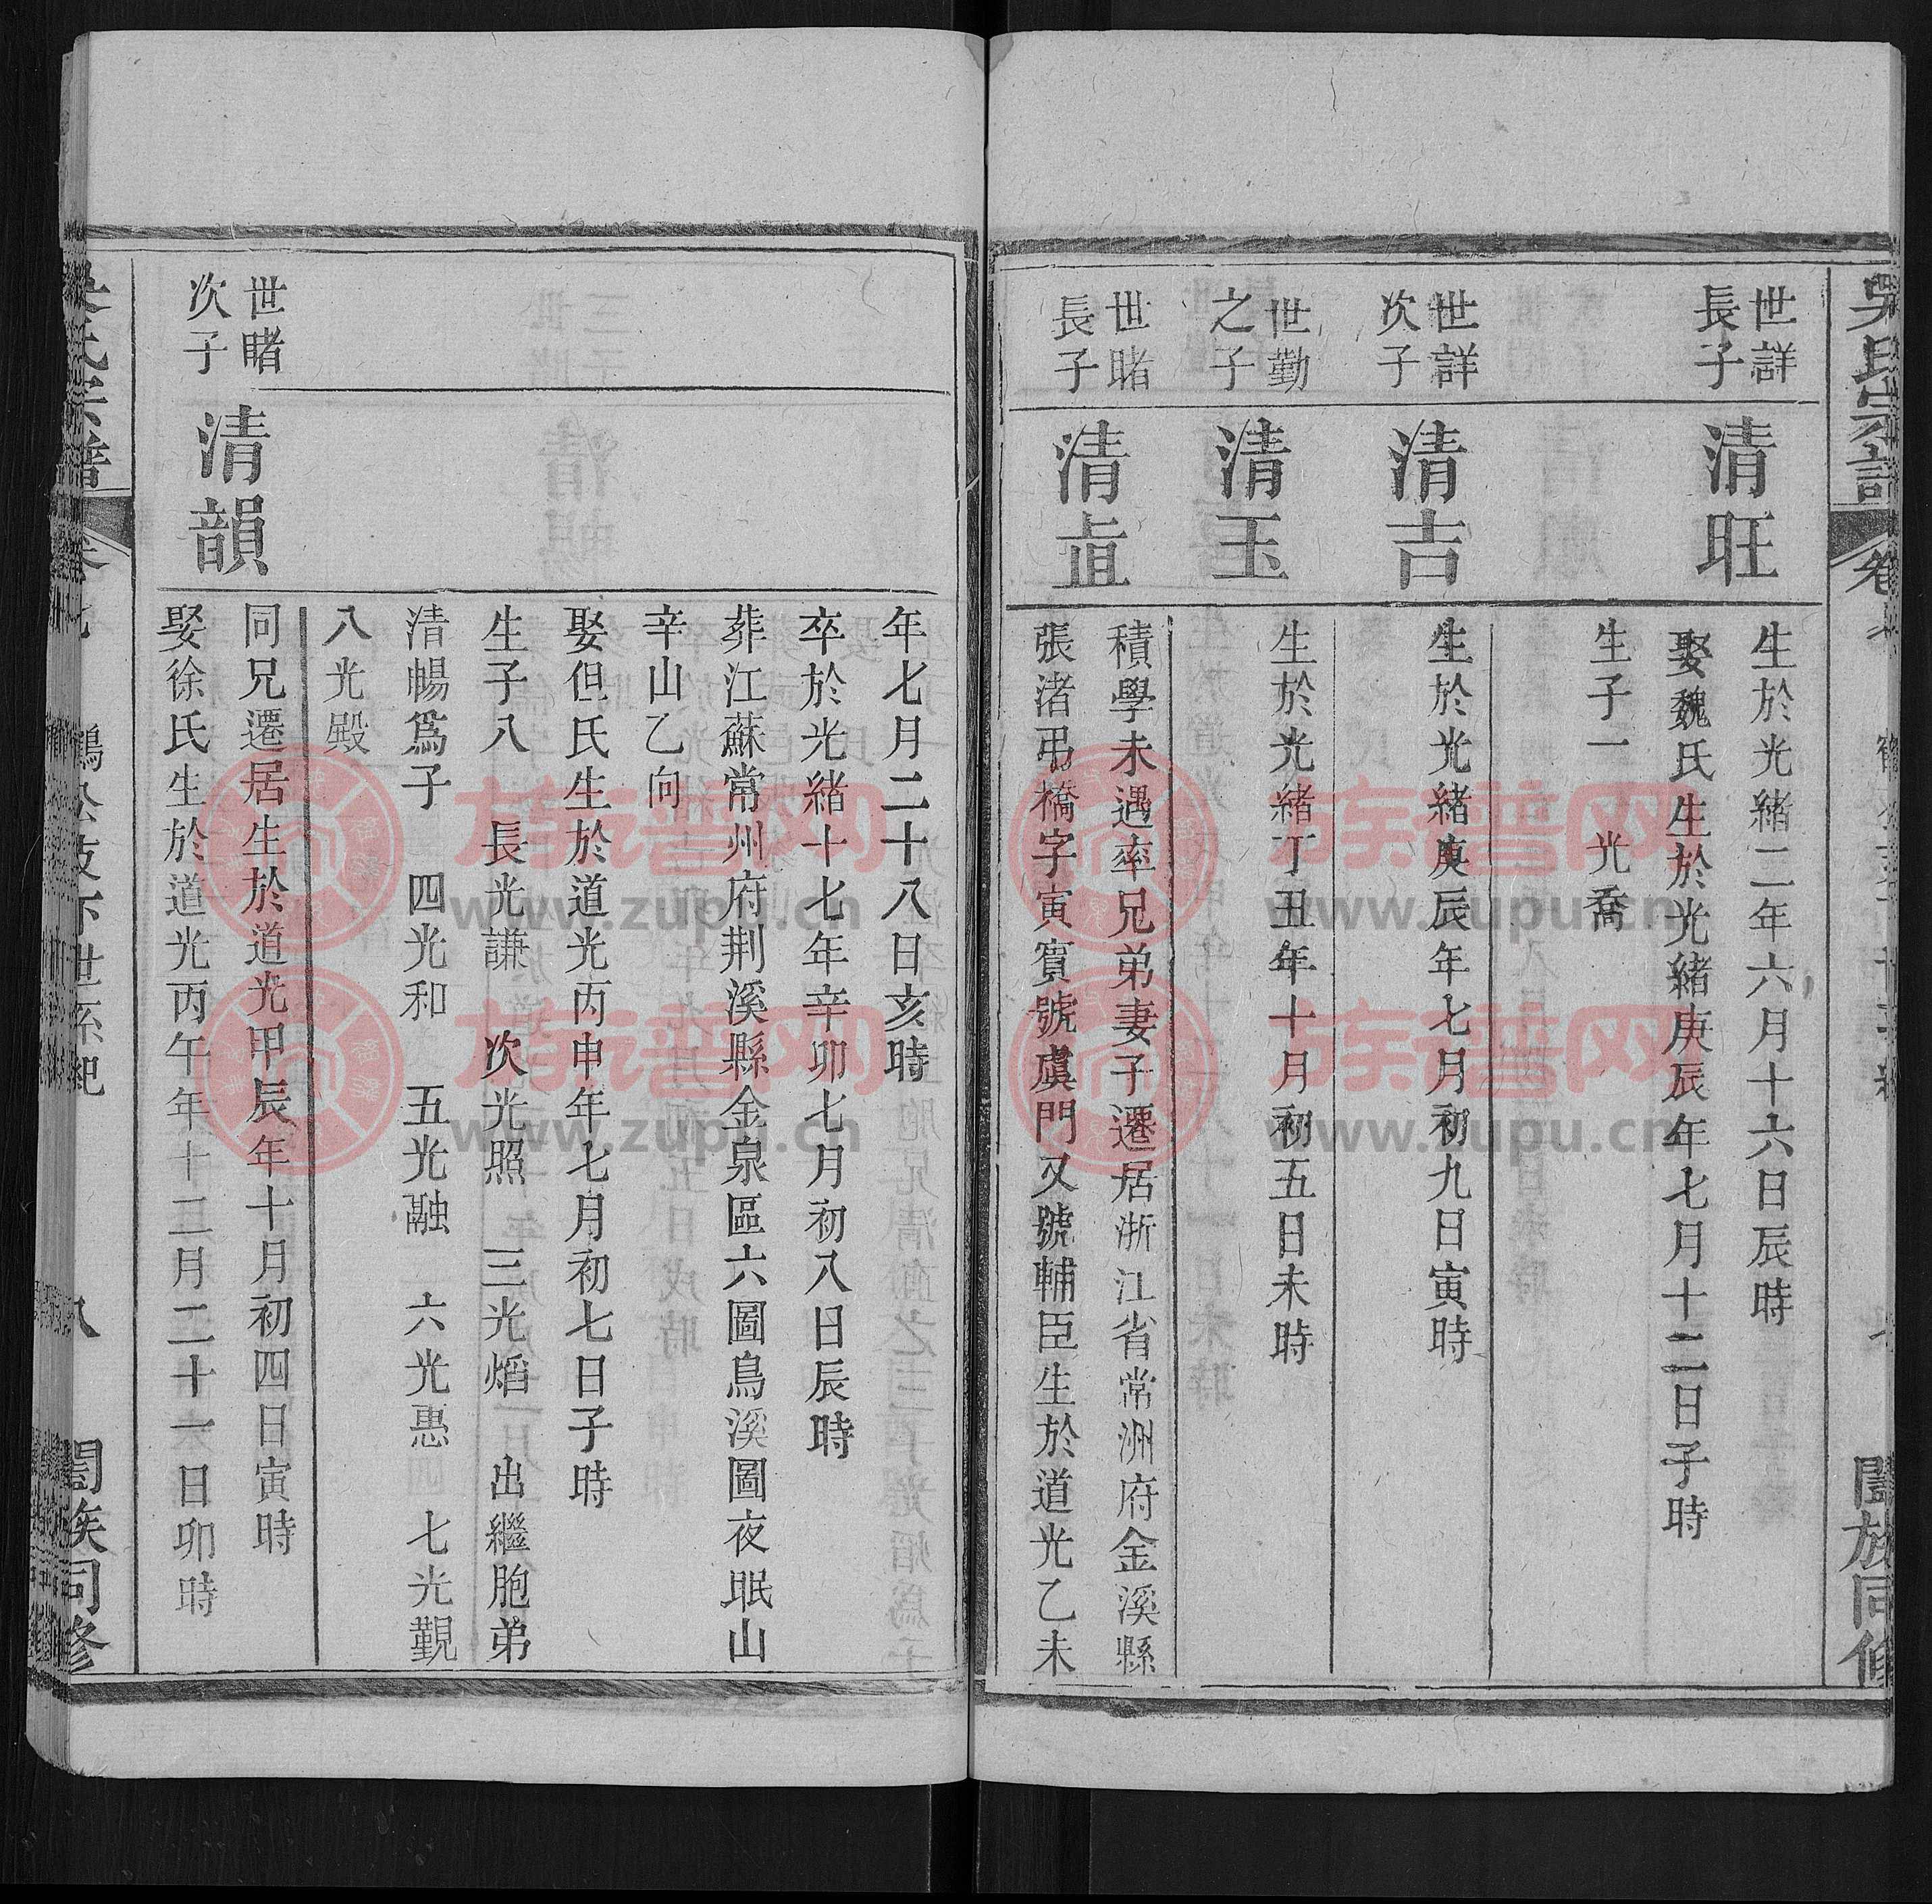 吳氏宗譜
卷七
七
闔族同修
世詳
長子
清旺
生於光緒二年六月十六日辰時
娶魏氏生於光緒庚辰年七月十二日子時
生子一 光喬
世詳
次子
清吉
生於光緒庚辰年七月初九日寅時
世勤
之子
清玉
生於光緒丁丑年十月初五日未時
世睹
長子
清直
積學未遇率兄弟妻子遷居浙江省常洲府金溪縣
張渚弔橋字寅賓號虞門又號輔臣生於道光乙未
年七月二十八日亥時
卒於光緒十七年辛卯七月初八日辰時
葬江蘇常州府荆溪縣金泉區六圖鳥溪圖夜眠山
辛山乙向
娶但氏生於道光丙申年七月初七日子時
生子八 長光謙 次光照 三光熖 出繼胞弟
清暢爲子 四光和 五光融 六光惠 七光觀
八光殿
世睹
次子
清韻
同兄遷居生於道光甲辰年十月初四日寅時
娶徐氏生於道光丙午年十二月二十一日卯時
吳氏宗譜
卷七
鶴公支下世系紀
八
闔族同修
族谱网
www.zupu.cn
族谱网
www.zupu.cn
族谱网
www.zupu.cn
族谱网
www.zupu.cn